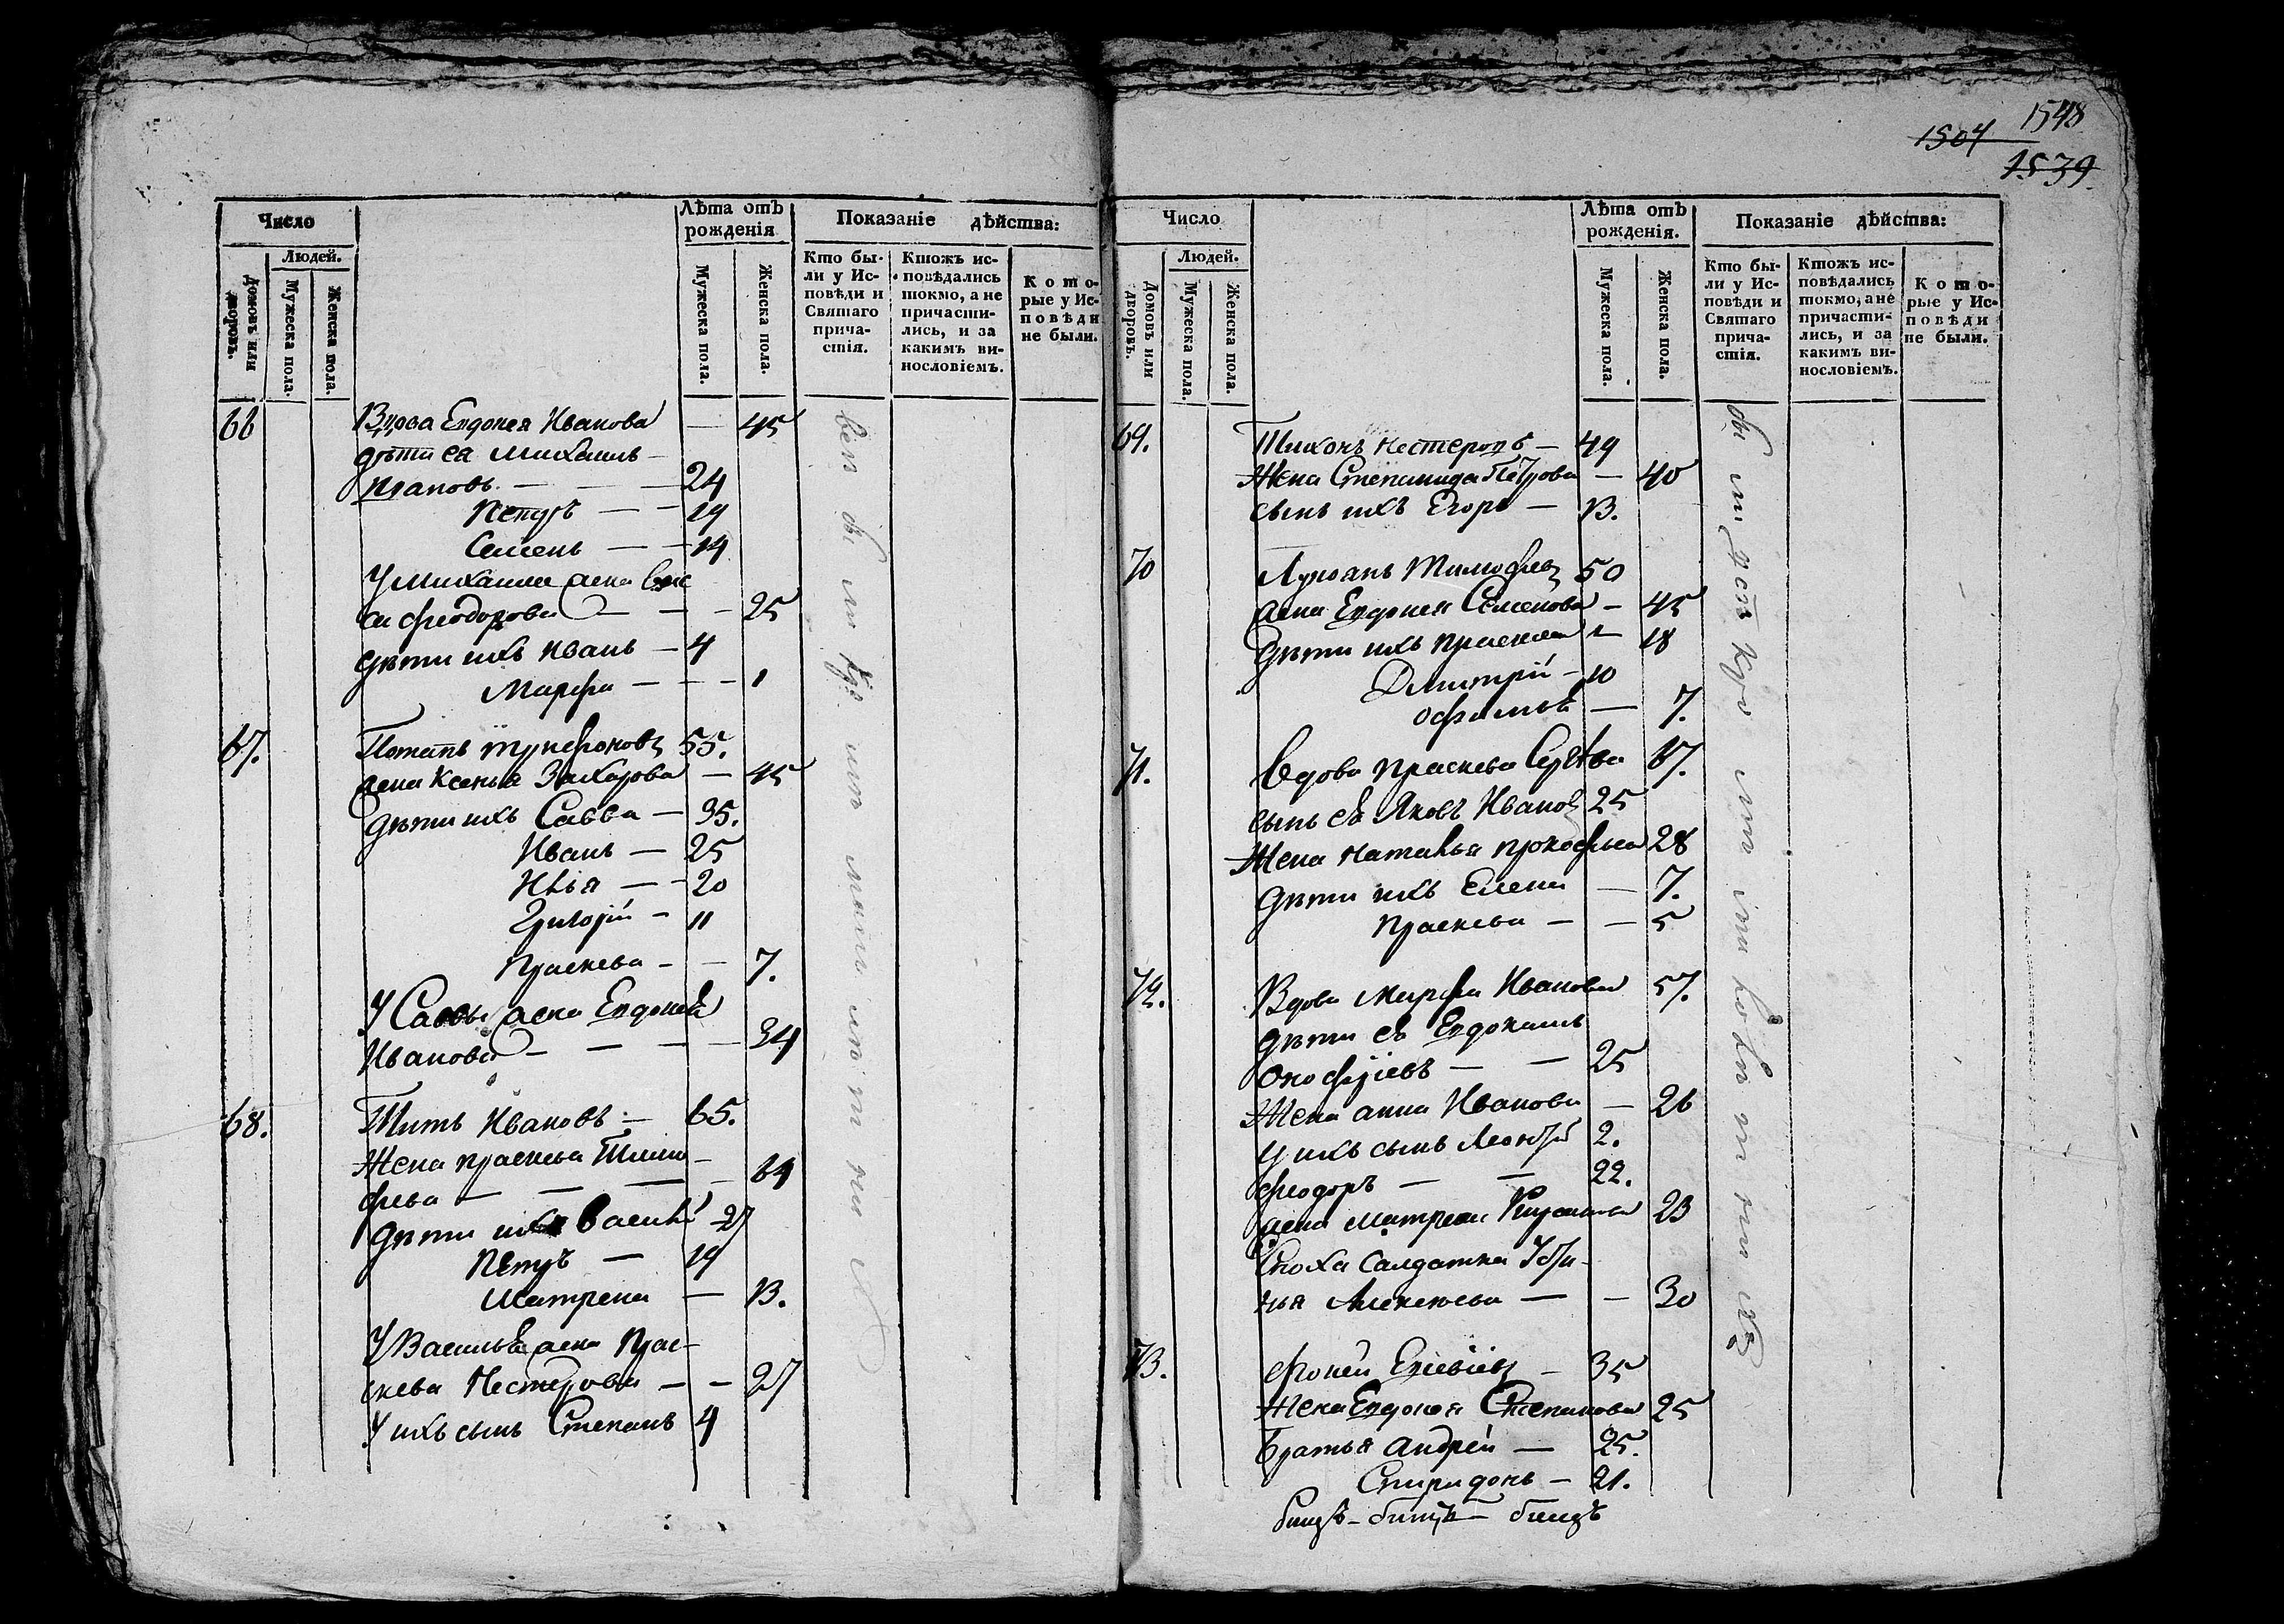 1548
1504
1539
Число
Лѣта отъ
рожденія
Показаніе дѣйства:
Людей.
Домовъ или
дворовъ.
Мужеска пола.
Женска пола.
Мужеска пола.
Женска пола.
Кто бы-
ли у Ис-
повѣди и
Святаго
прича-
стія.
Ктожъ ис-
повѣдались
токмо, а не
причасти-
лись, и за
какимъ ви-
нословіемъ.
Кото-
рые у Ис-
повѣди
не были.
66 Вдова Евдокея Иванова — 45
дѣти ея Михаилъ
24
Петръ — 19
Семенъ — 14
У Михаила жена
Феодорова — 25
дѣти ихъ Иванъ — 4
Марфа — 1
67. Потапъ Трифоновъ 55.
жена Ксенья Захарова — 45
Дѣти ихъ Савва — 35.
Иванъ — 25
Илья — 20
Григорій — 11
Праскева — 7.
У Саввы жена Евдокея
Иванова — 34
68. Титъ Ивановъ — 65.
Жена праскева Тимо-
феева — 64
Дѣти ихъ Василій 27
Петръ — 19
Матрена — 13.
У Василья жена Прас-
кева Нестерова — 27
У ихъ сынъ Степанъ 4
Число
Лѣта отъ
рожденія.
Показаніе дѣйства:
Людей.
Домовъ или
дворовъ.
Мужеска пола.
Женска пола.
Мужеска пола.
Женска пола.
Кто бы-
ли у Ис-
повѣди и
Святаго
прича-
стія.
Ктожъ ис-
повѣдались
токмо, а не
причасти-
лись, и за
какимъ ви-
нословіемъ.
Кото-
рые у Ис-
повѣди
не были.
69. Тихонъ Нестеровъ — 49
Жена Степанида Петрова — 40
сынъ ихъ Егоръ — 13.
70 Лукоянъ Тимофеев 50
жена Евдокея Семенова — 45
Дѣти ихъ праскева — 18
Димитрій — 10
Офимья — 7.
71. Вдова праскева 67.
сынъ ея Яковъ Иванов 25
Жена Наталья прокофьева 28
Дѣти ихъ Елена — 7.
Праскева — 5
72. Вдова Марфа Иванова 57.
Дѣти ея Евдокимъ
Онофріевъ — 25
Жена анна Иванова — 26
У ихъ сынъ Леонтій 2.
Феодоръ — 22.
жена Матрена 23
Сноха Салдатка Усти-
нья Алексѣева — 30
73. Фокей — 35
Жена Евдокея Степанова 25
Братья Андрей — 25.
Спиридонъ — 21.